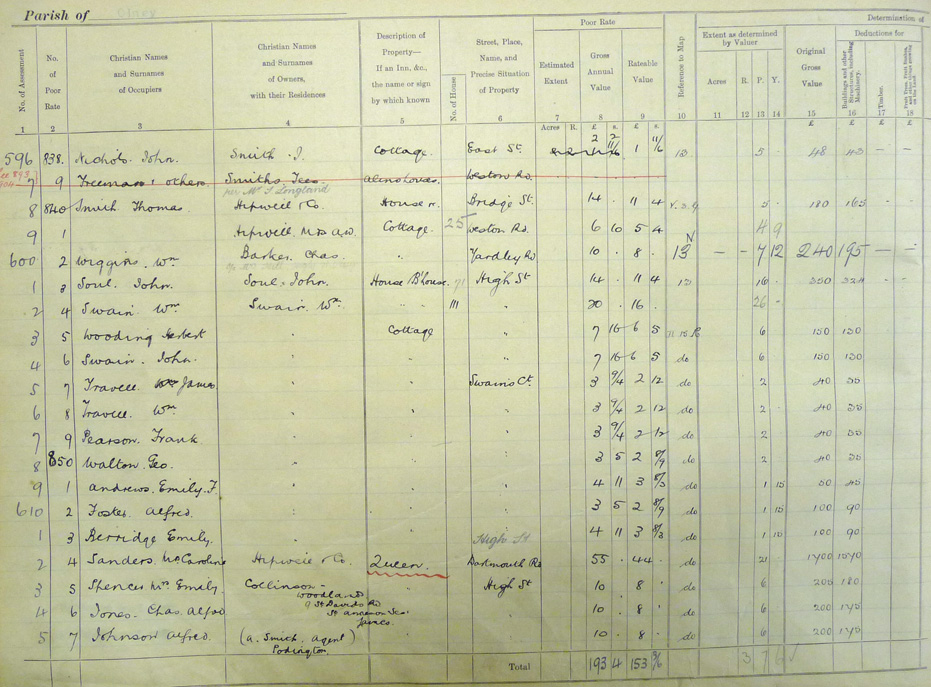 Parish of Olney
Poor Rate
Determination of
Extent as determined by Valuer
Deductions for
No. of Assessment
No. of Poor Rate
Christian Names and Surnames of Occupiers
Christian Names and Surnames of Owners, with their Residences
Description of Property— If an Inn, &c., the name or sign by which known
No. of House
Street, Place, Name, and Precise Situation of Property
Estimated Extent
Gross Annual Value
Rateable Value
Reference to Map
Acres R. P. Y.
Original Gross Value
Buildings and other Structures, including Machinery.
Timber.
1 2 3 4 5 6 7 8 9 10 11 12 13 14 15 16 17 18
Acres R. £ s. £ s. £ £
596 838. Nichols. John. Smith. J. Cottage. East St. 1 11/6 5 48 43 - -
7 9 Freeman & others Smiths Tees Almshouses. Weston Rd.
per Mr
8 840 Smith Thomas Hipwell & Co. House r. Bridge St. 14 . 11 4 5 180 165 -
9 1 Hipwell. Cottage. 25 Weston Rd. 6 10 5 4 4 9
600 2 Wiggins. Wm Barker. Chas. " Yardley Rd 10 . 8 . N 13 - - 7 12 240 195 - -
1 3 Soul. John. Soul. John. House B'house. 71 High St 14 . 11 4 16 350 -
2 4 Swain. Wm Swain. Wm " 111 " 20 . 16 . 26 -
3 5 Wooding Herbert " Cottage " 7 16 5 6 150 130
4 6 Swain. John. " " " 7 16 5 do 6 150 130
5 7 Travell James " " Swains Ct. 3 9/4 2 12 do 2 40 35
6 8 Travell. Wm " " " 3 9/4 2 12 do 2 40 35
7 9 Pearson. Frank " " " 3 9/4 2 12 do 2 40 35
8 850 Walton. Geo. " " " 3 5 2 8/9 do 2 40 35
9 1 Andrews. Emily. F. " " " 4 11 3 8/3 do 1 15 50 45
610 2 Foster. Alfred. " " " 3 5 2 8/9 do 1 15 100 90
High St
1 3 Berridge Emily. " " " 4 11 3 8/3 do 1 10 100 90
2 4 Sanders. Mrs Caroline Hipwell & Co. Queen. Dartmouth Rd 55 . 44 . do 21
3 5 Spencer Mrs Emily. Collinson - " High St 10 . 8 do 6 205 180
Woodlands
9 St Davids Rd
4 6 Jones. Chas. Alfred " " 10 . 8 . do 6 200 175
5 7 Johnson Alfred. (A. Smith, Agent) " " 10 . 8 . do 6 200 175
Podington.
Total 193 4 153 3 7 6